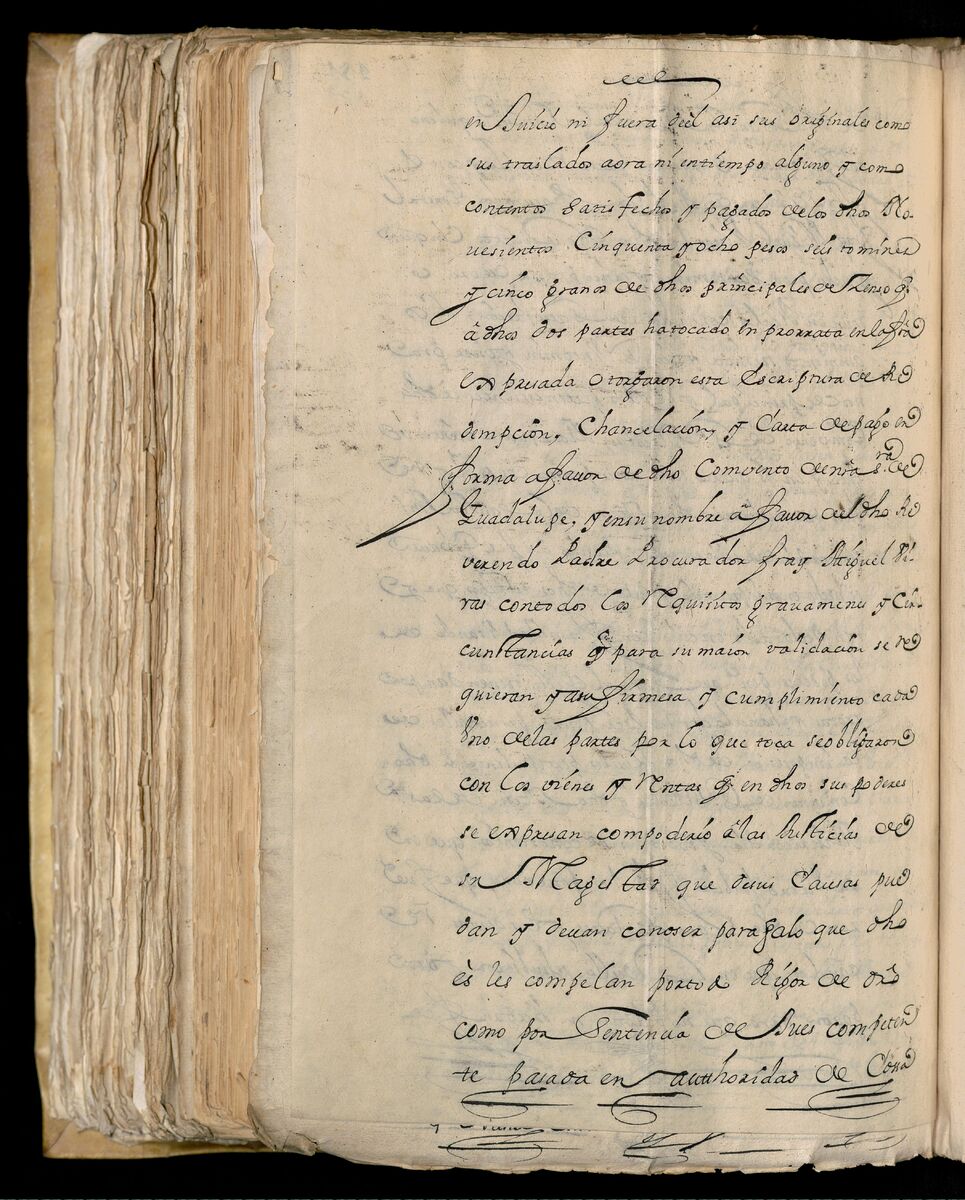 en Juicio ni fuera deèl asi sus originales como
sus traslados aora ni entiempo alguno y como
contentos satisfechos y pagados delos dhos No-
vesientos Cinquenta yocho pesos seis tomines
y cinco granos de dhos principales de Zenso q̃
â dhos dos partes ha tocado en prorrata en la
expresada otorgaron esta Escriptura de Re
dempcion, Chancelacion, y Carta de pago en
forma a favor de dho Comvento de nrã s.ra de
Guadalupe, y en su nombre â favor del dho Re
verendo Padre Procurador fray Miguel
con todos los Requisitos gravamenes y Cir-
cunstancias q̃ para su maior validacion se re
quieran y a su firmesa y cumplimiento cada
Vno delas partes por lo que toca se obligaron
con los vienes y Rentas q̃ en dhos sus poderes
se expresan com poderio â las Justicias de
su Magestad que desus Causas pue
dan y devan conoser para q̃ alo que dho
ès les compelan por todo Rigor de drõ
como por Sentencia de Jues competen
te pasada en authoridad de Cosa